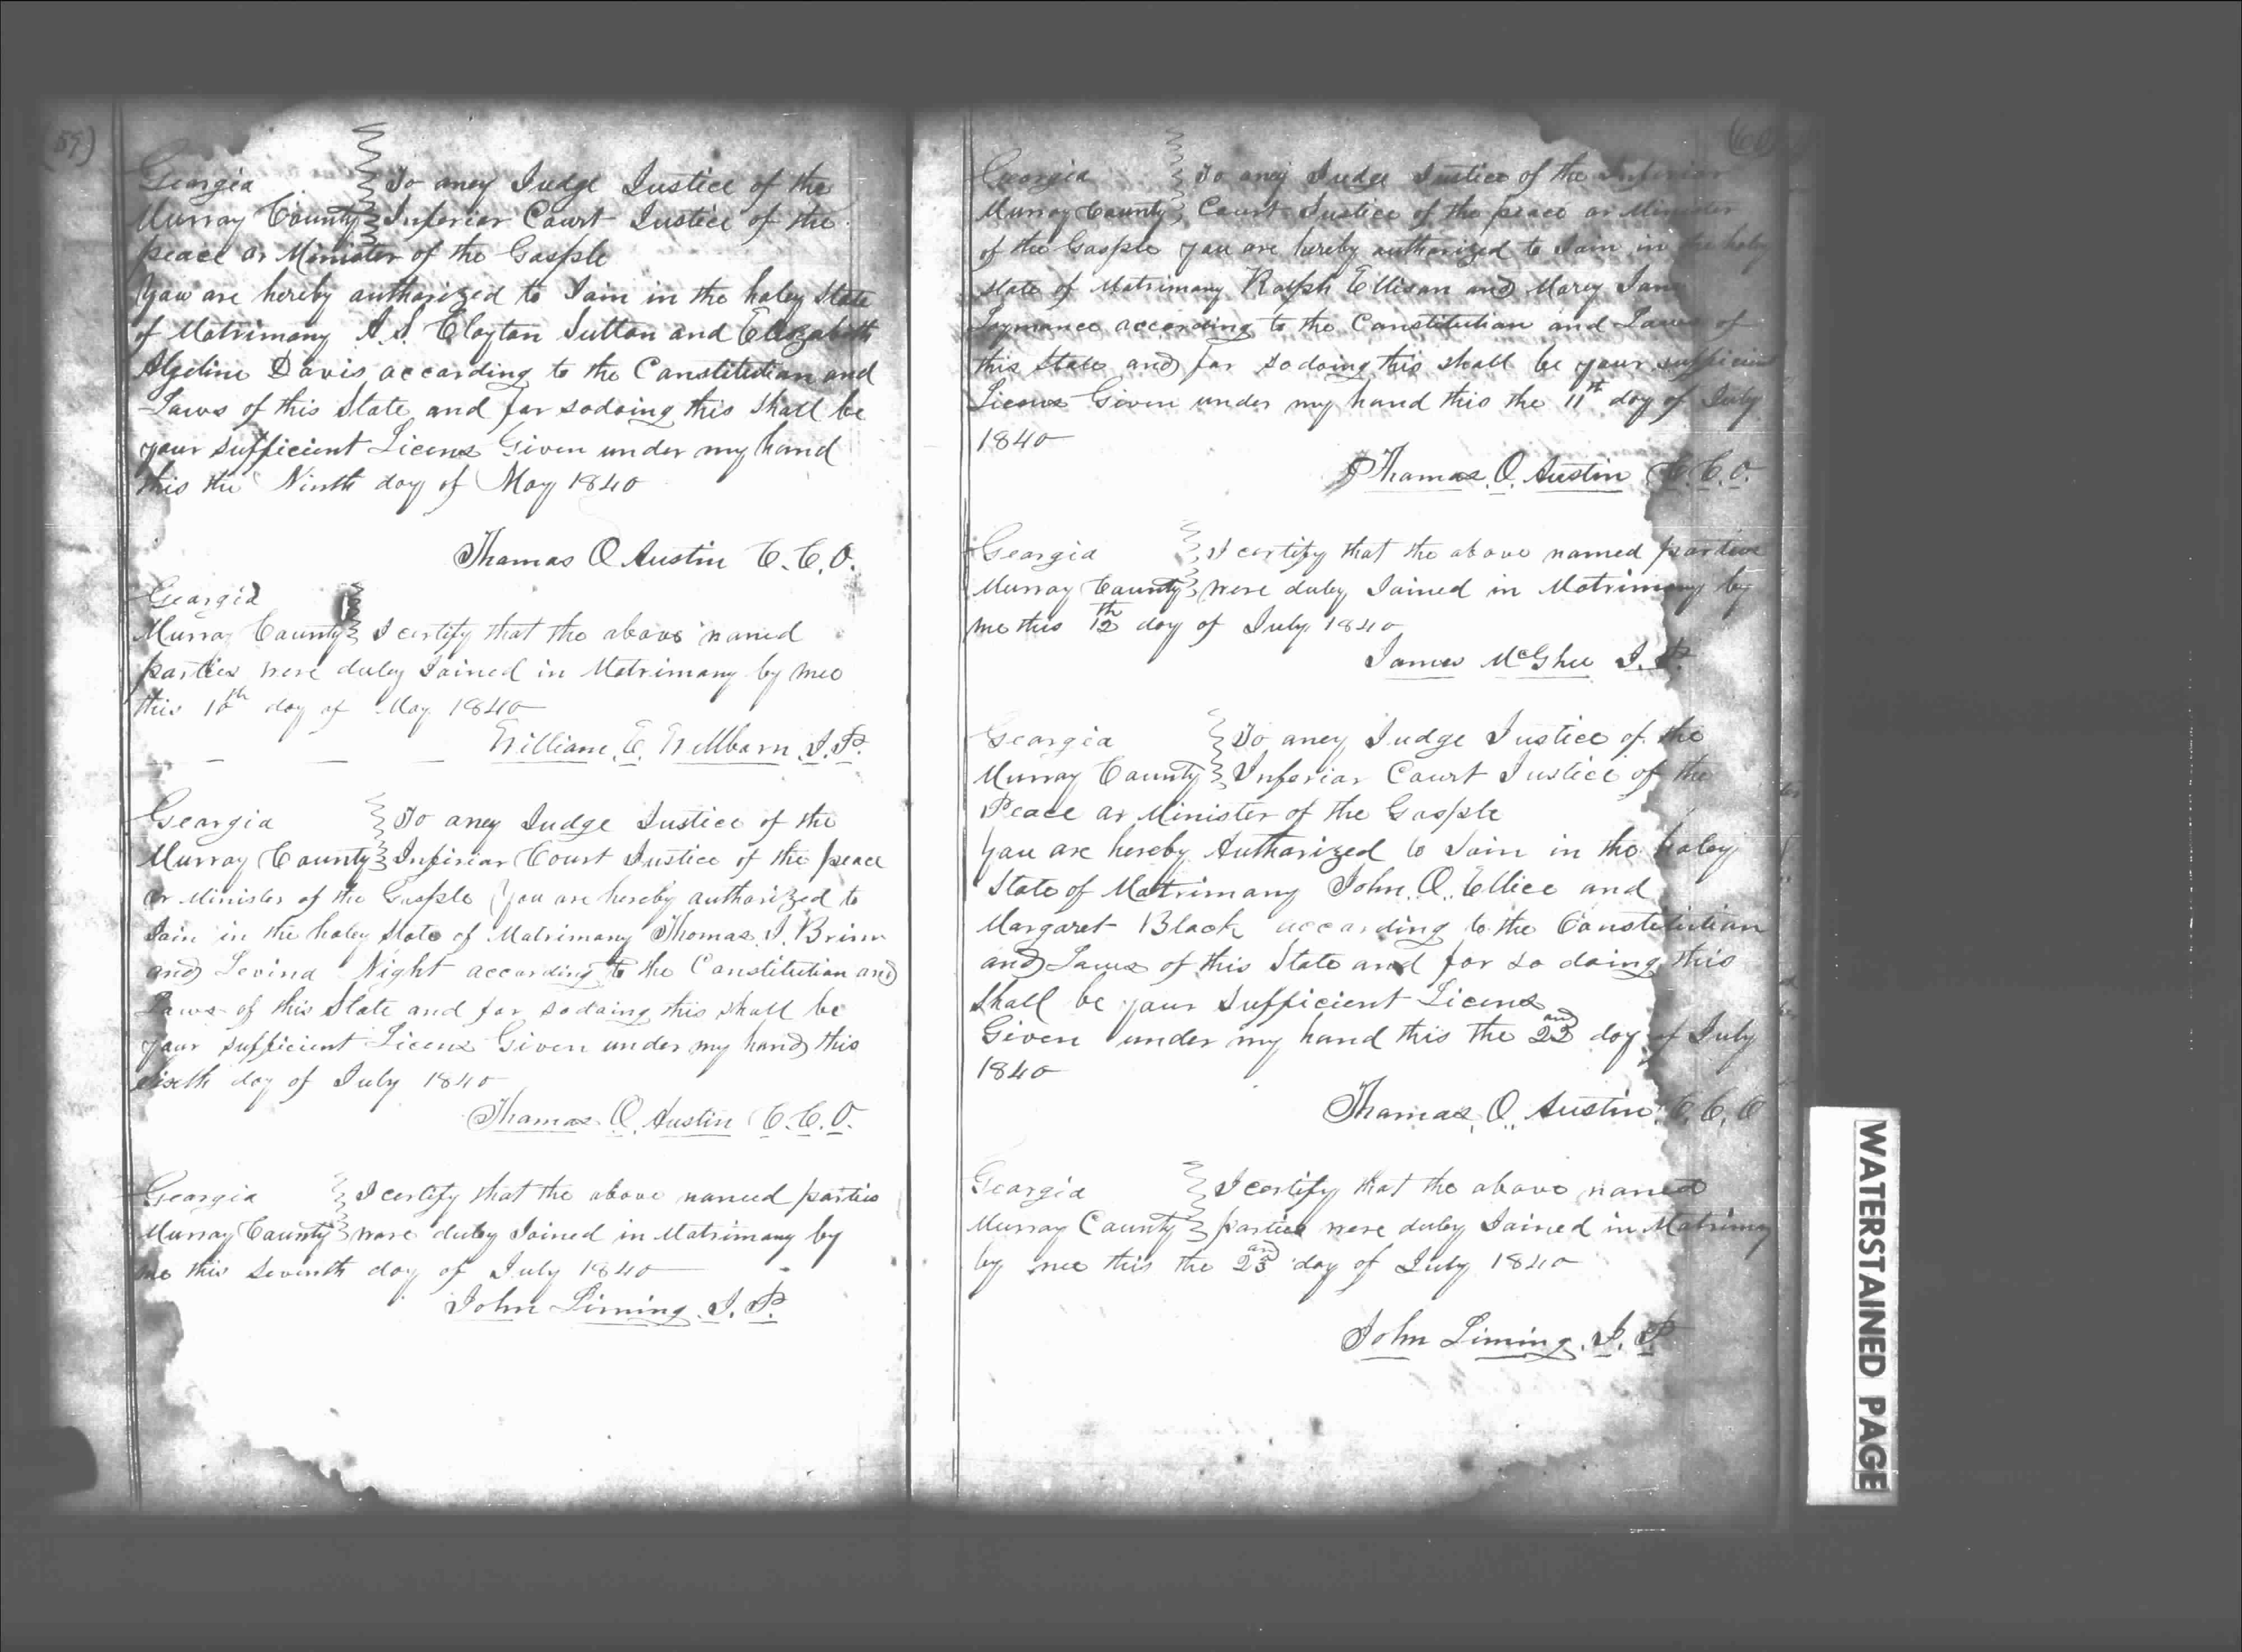 (59)
Georgia To aney Judge Justice of the
Murray County Inferior Court Justice of the
peace or Minister of the Gosple
You are hereby authorized to Join in the holey State
of Matrimony A. S. Clayton Sutton and Elizabeth
Davis according to the Constitution and
Laws of this State and for sodoing this shall be
your sufficient Licens Given under my hand
this the Ninth day of May 1840
Thomas Q Austin C. C. O.
Georgia
Murray County I certify that the above named
parties were duley Joined in Matrimony by mee
this 10th day of May 1840
William C. J. P.
Georgia To aney Judge Justice of the
Murray County Inferior Court Justice of the peace
or Minister of the Gosple You are hereby authorized to
Join in the holey State of Matrimony Thomas J.
and Levina Night according to the Constitution and
Laws of this State and for sodoing this shall be
your sufficient Licens Given under my hand this
Sixth day of July 1840
Thomas Q. Austin C. C. O.
Georgia I certify that the above named parties
Murray County were duley Joined in Matrimony by
me this Seventh day of July 1840
John Liming J. P.
(60)
Georgia To aney Judge Justice of the Inferior
Murray County Court Justice of the peace or Minister
of the Gosple you are hereby authorized to Join in the holey
State of Matrimony Ralph Ellison and Marey Jane
according to the Constitution and Laws of
this State and for sodoing this shall be your sufficient
Licens Given under my hand this the 11th day of July
1840
Thomas Q. Austin C. C. O.
Georgia I certify that the above named parties
Murray County were duley Joined in Matrimony by
me this 12th day of July 1840
James McGhee J. P.
Georgia To aney Judge Justice of the
Murray County Inferior Court Justice of the
Peace or Minister of the Gosple
You are hereby Authorized to Join in the holey
State of Matrimony John Q. Ellice and
Margaret Black according to the Constitution
and Laws of this State and for so doing this
shall be your Sufficient Licens
Given under my hand this the 22and day of July
1840
Thomas Q. Austin C. C. O
Georgia I certify that the above named
Murray County parties were duley Joined in Matrimony
by mee this the 23and day of July 1840
John Liming J. P.
WATERSTAINED PAGE